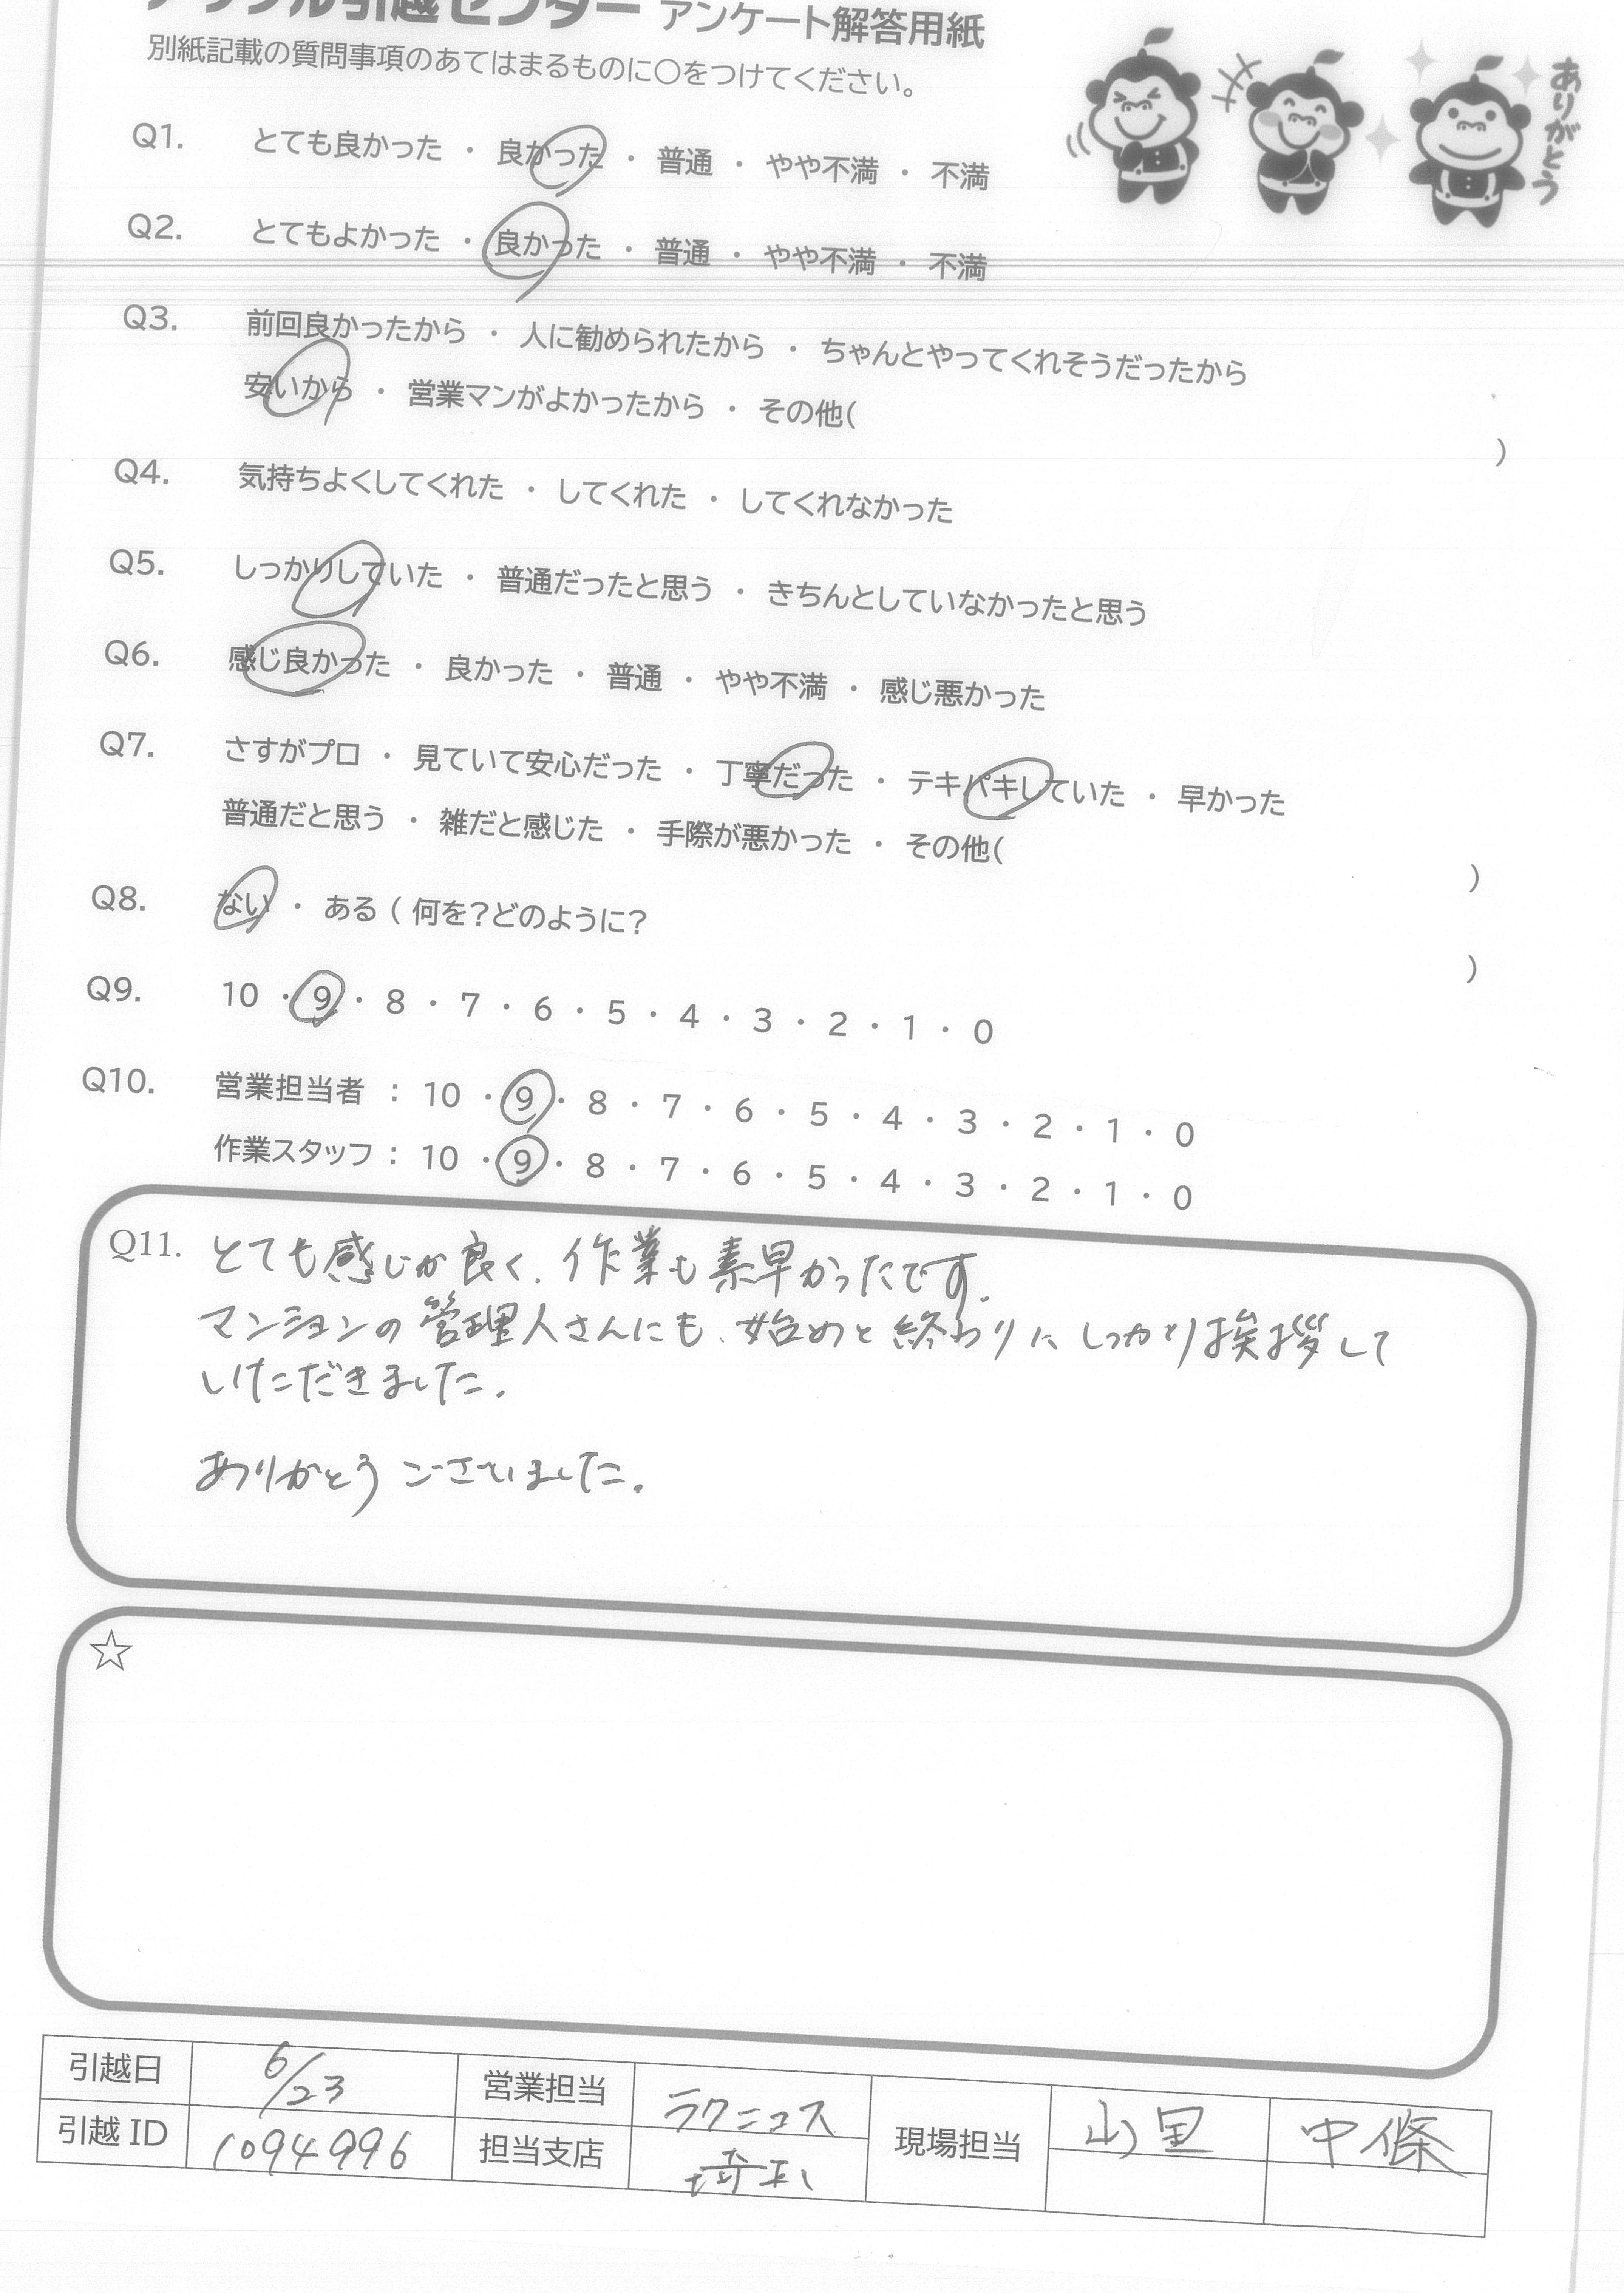 アップル引越センター アンケート解答用紙
別紙記載の質問事項のあてはまるものに○をつけてください。
ありがとう
Q1. とても良かった ・ 良かった ・ 普通 ・ やや不満 ・ 不満
Q2. とてもよかった ・ 良かった ・ 普通 ・ やや不満 ・ 不満
Q3. 前回良かったから ・ 人に勧められたから ・ ちゃんとやってくれそうだったから
安いから ・ 営業マンがよかったから ・ その他( )
Q4. 気持ちよくしてくれた ・ してくれた ・ してくれなかった
Q5. しっかりしていた ・ 普通だったと思う ・ きちんとしていなかったと思う
Q6. 感じ良かった ・ 良かった ・ 普通 ・ やや不満 ・ 感じ悪かった
Q7. さすがプロ ・ 見ていて安心だった ・ 丁寧だった ・ テキパキしていた ・ 早かった
普通だと思う ・ 雑だと感じた ・ 手際が悪かった ・ その他( )
Q8. ない ・ ある ( 何を?どのように? )
Q9. 10 ・ 9 ・ 8 ・ 7 ・ 6 ・ 5 ・ 4 ・ 3 ・ 2 ・ 1 ・ 0
Q10. 営業担当者 : 10 ・ 9 ・ 8 ・ 7 ・ 6 ・ 5 ・ 4 ・ 3 ・ 2 ・ 1 ・ 0
作業スタッフ : 10 ・ 9 ・ 8 ・ 7 ・ 6 ・ 5 ・ 4 ・ 3 ・ 2 ・ 1 ・ 0
Q11. とても感じが良く、作業も素早かったです。
マンションの管理人さんにも、始めと終わりに しっかり挨拶して
いただきました。
ありがとう ございました。
☆
引越日 6/23 営業担当 ラクニコス 現場担当 山里 中條
引越 ID 1094996 担当支店 埼玉